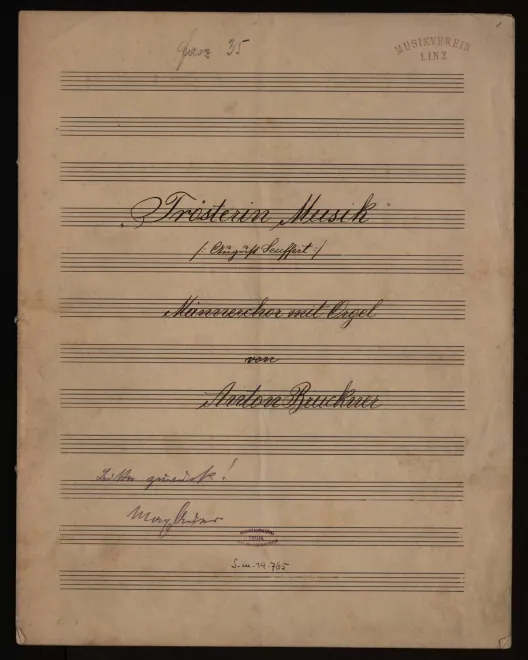 35
MUSIKVEREIN
LINZ
Trösterin Musik
/: August Seuffert :/
Männerchor mit Orgel
von
Anton Bruckner
Bitte zurück!
Max Auer
S.m. 19.765